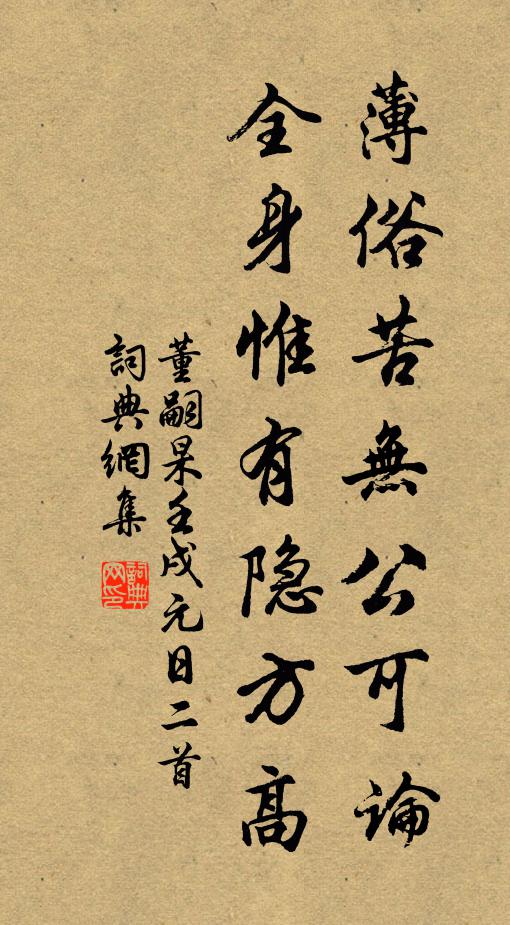 薄俗苦無公可論
全身惟有隐方高
董嗣杲壬戌元日二首
詞典網集
詞典網印